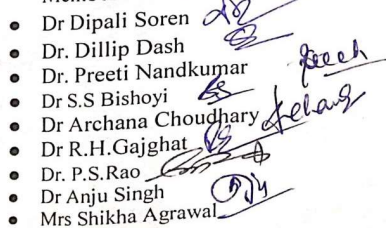 Dr Dipali Soren
Dr. Dillip Dash
Dr. Preeti Nandkumar
Dr S.S Bishoyi
Dr Archana Choudhary
Dr R.H.Gajghat
Dr. P.S.Rao
Dr Anju Singh
Mrs Shikha Agrawal